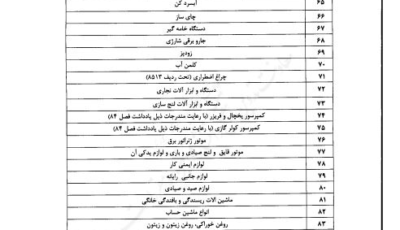 آبسرد کن ۶۵
چای ساز ۶۶
دستگاه خامه گیر ۶۷
جارو برقی شارژی ۶۸
زودپز ۶۹
کلمن آب ۷۰
چراغ اضطراری (تحت ردیف ۸۵۱۳) ۷۱
دستگاه و ابزار آلات نجاری ۷۲
دستگاه و ابزار آلات لنج سازی ۷۳
کمپرسور یخچال و فریزر (با رعایت مندرجات ذیل یادداشت فصل ۸۴) ۷۴
کمپرسور کولر گازی (با رعایت مندرجات ذیل یادداشت فصل ۸۴) ۷۵
موتور ژنراتور برق ۷۶
موتور قایق و لنج صیادی و باری و لوازم یدکی آن ۷۷
لوازم ایمنی کار ۷۸
لوازم جانبی رایانه ۷۹
لوازم صید و صیادی ۸۰
ماشین آلات ریسندگی و بافندگی خانگی ۸۱
انواع ماشین حساب ۸۲
روغن خوراکی، روغن زیتون و زیتون ۸۳